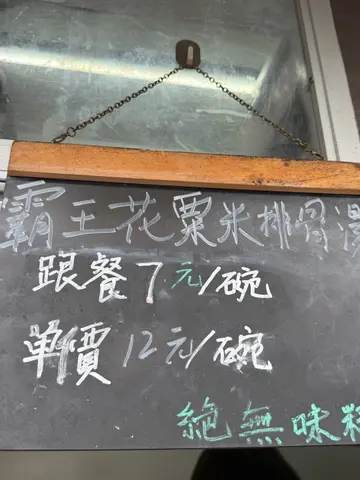 霸王花粟米排骨湯
跟餐7元/碗
單價12元/碗
絕無味精